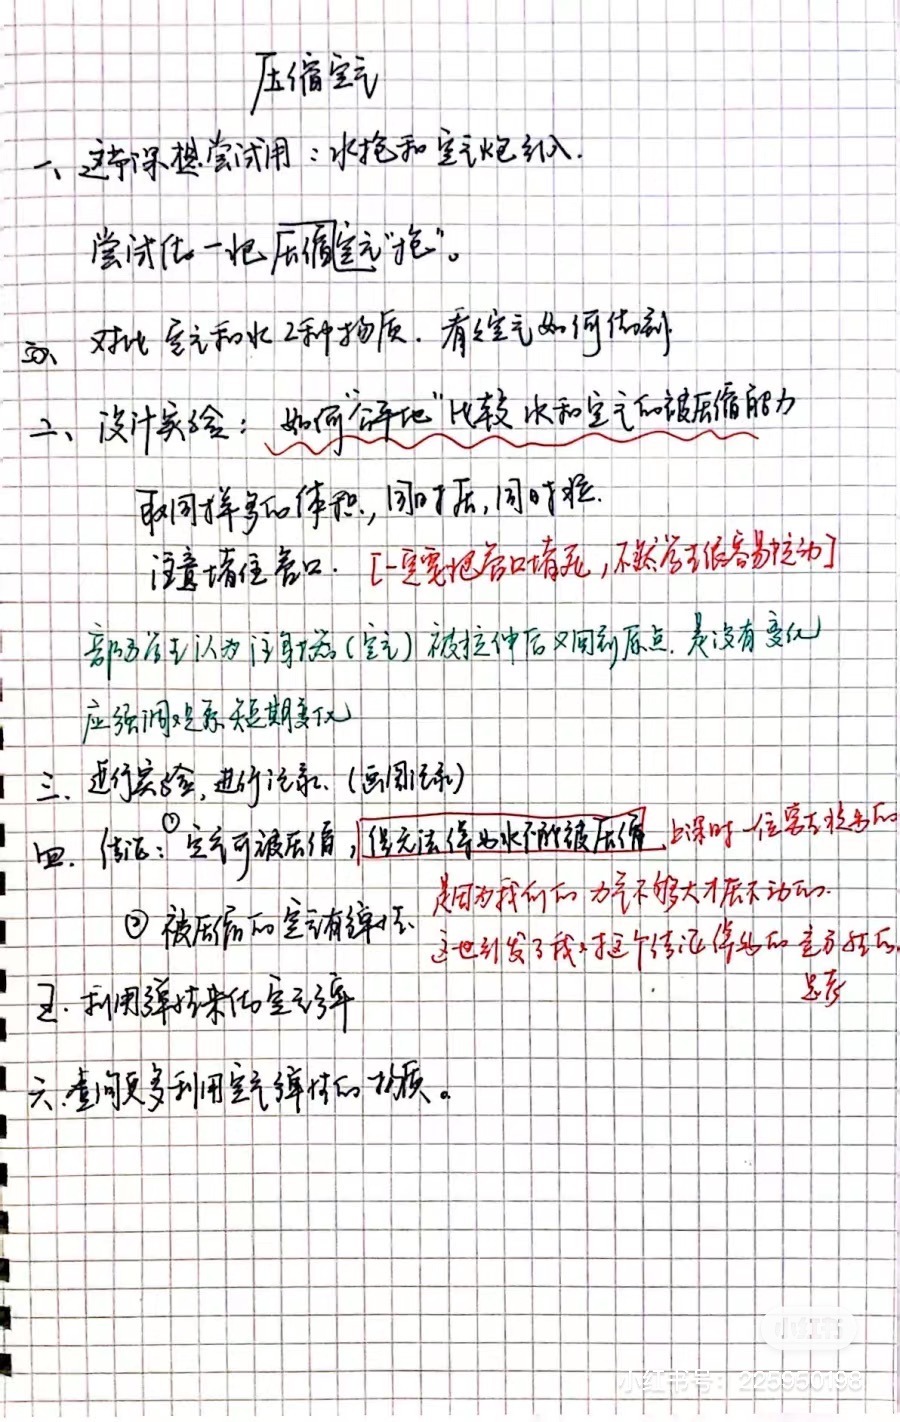 压缩空气
一、这节课想尝试用：水枪和空气炮引入.
尝试做一把压缩空气“枪”。
对比空气和水2种物质. 看空气如何做到
二、设计实验：如何“公平地”比较水和空气的被压缩能力
取同样多的体积, 同时压, 同时松.
注意堵住管口. [一定要把管口堵死, 不然学生很容易拉动]
部分学生认为注射器(空气)被拉伸后又回到原点. 是没有变化
应强调观察短期变化
三、进行实验, 进行记录. (画图记录)
四、结论：①空气可被压缩, 但无法得出水不能被压缩 上课时一位学生提出的
是因为我们的力气不够大才压不动的.
②被压缩的空气有弹性.
这也引发了我对这个结论得出的
思考
五. 利用弹性来做空气
六. 查阅更多利用空气弹性的物质。
小红书
小红书号：225950198